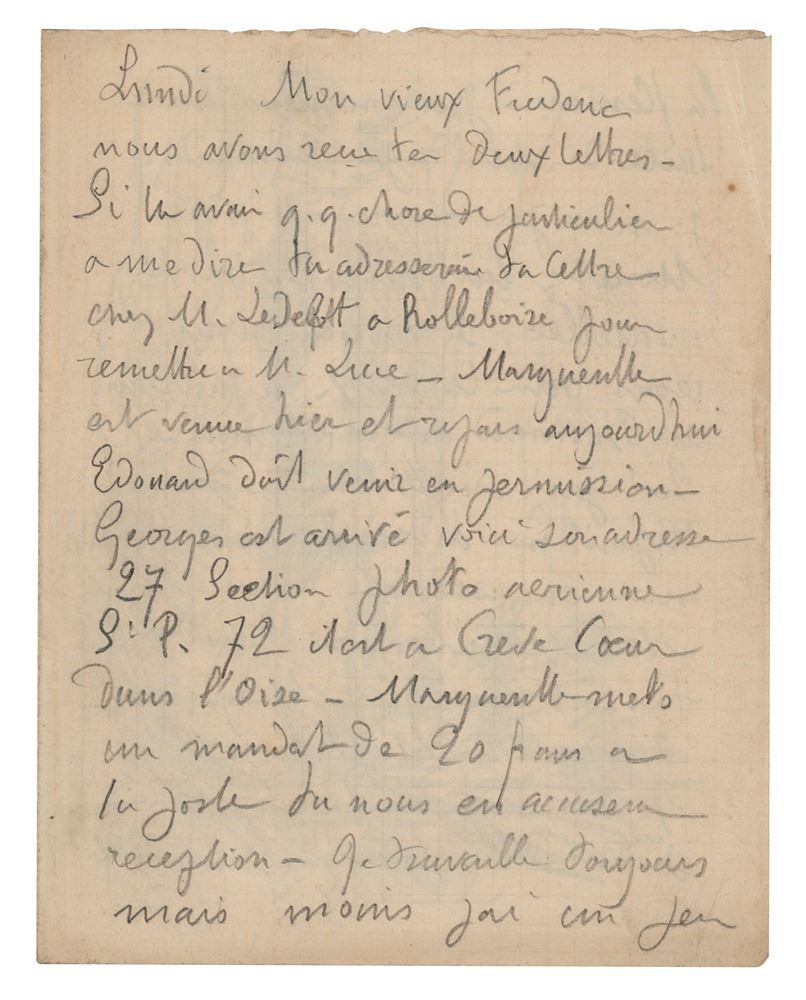 Lundi Mon vieux Frederic
nous avons recu tes deux lettres -
Si tu avais q.q. chose de particulier
a me dire tu adresserais ta lettre
chez M. a Rolleboise pour
remettre a M. Luce - Marguerite
est venue hier et repars aujourdhui
Edouard doit venir en permission -
Georges est arrivé voici son adresse
27 Section photo aerienne
S. P. 72 il est a Creve Cœur
dans l'Oise - Marguerite mets
un mandat de 20 frans a
la poste tu nous en accusera
reception - Je travaille toujours
mais moins jai un peu